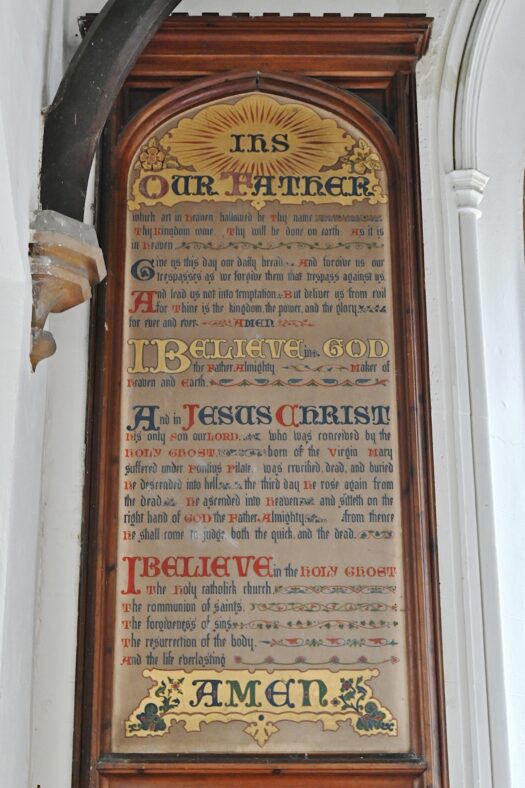 IHS
OUR FATHER
which art in Heaven, hallowed be Thy name
Thy Kingdom come, Thy will be done on earth, As it is
in Heaven
Give us this day our daily bread, And forgive us our
trespasses as we forgive them that trespass against us.
And lead us not into temptation, But deliver us from evil
for Thine is the kingdom, the power, and the glory
for ever and ever. AMEN.
I BELIEVE in GOD
the Father Almighty, Maker of
Heaven and Earth,
And in JESUS CHRIST
His only Son our LORD, who was conceived by the
HOLY GHOST, born of the Virgin Mary
suffered under Pontius Pilate, was crucified, dead, and buried
He descended into hell, the third day He rose again from
the dead, He ascended into Heaven, and sitteth on the
right hand of GOD the Father Almighty, from thence
He shall come to judge, both the quick, and the dead.
I BELIEVE in the HOLY GHOST
The Holy catholick church,
The communion of saints,
The forgiveness of sins,
The resurrection of the body,
And the life everlasting
AMEN